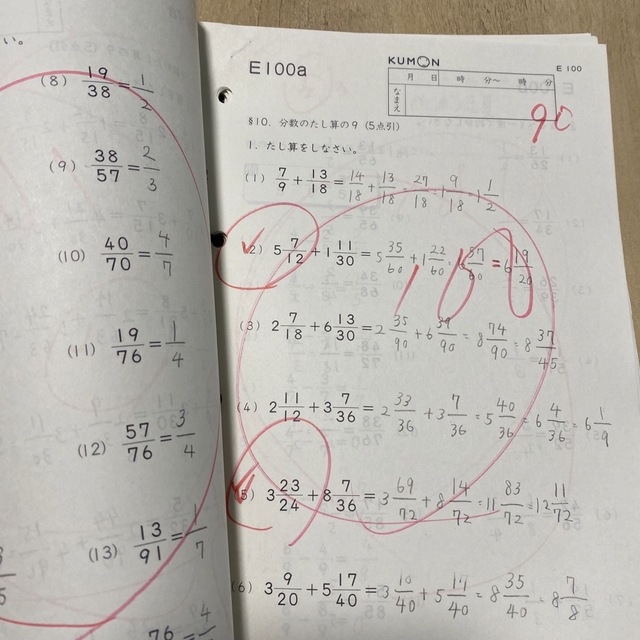 い。
(8) 19/38 = 1/2
(9) 38/57 = 2/3
(10) 40/70 = 4/7
(11) 19/76 = 1/4
(12) 57/76 = 3/4
(13) 13/91 = 1/7
KUMON
E100a
E 100
月 日 時 分〜 時 分
なまえ
90
§10. 分数のたし算の9 (5点引)
1. たし算をしなさい。
(1) 7/9 + 13/18 = 14/18 + 13/18 = 27/18 = 1 9/18 = 1 1/2
(2) 5 7/12 + 1 11/30 = 5 35/60 + 1 22/60 = 6 57/60 = 6 19/20
(3) 2 7/18 + 6 13/30 = 2 35/90 + 6 39/90 = 8 74/90 = 8 37/45
(4) 2 11/12 + 3 7/36 = 2 33/36 + 3 7/36 = 5 40/36 = 6 4/36 = 6 1/9
(5) 3 23/24 + 8 7/36 = 3 69/72 + 8 14/72 = 11 83/72 = 12 11/72
(6) 3 9/20 + 5 17/40 = 3 18/40 + 5 17/40 = 8 35/40 = 8 7/8
100